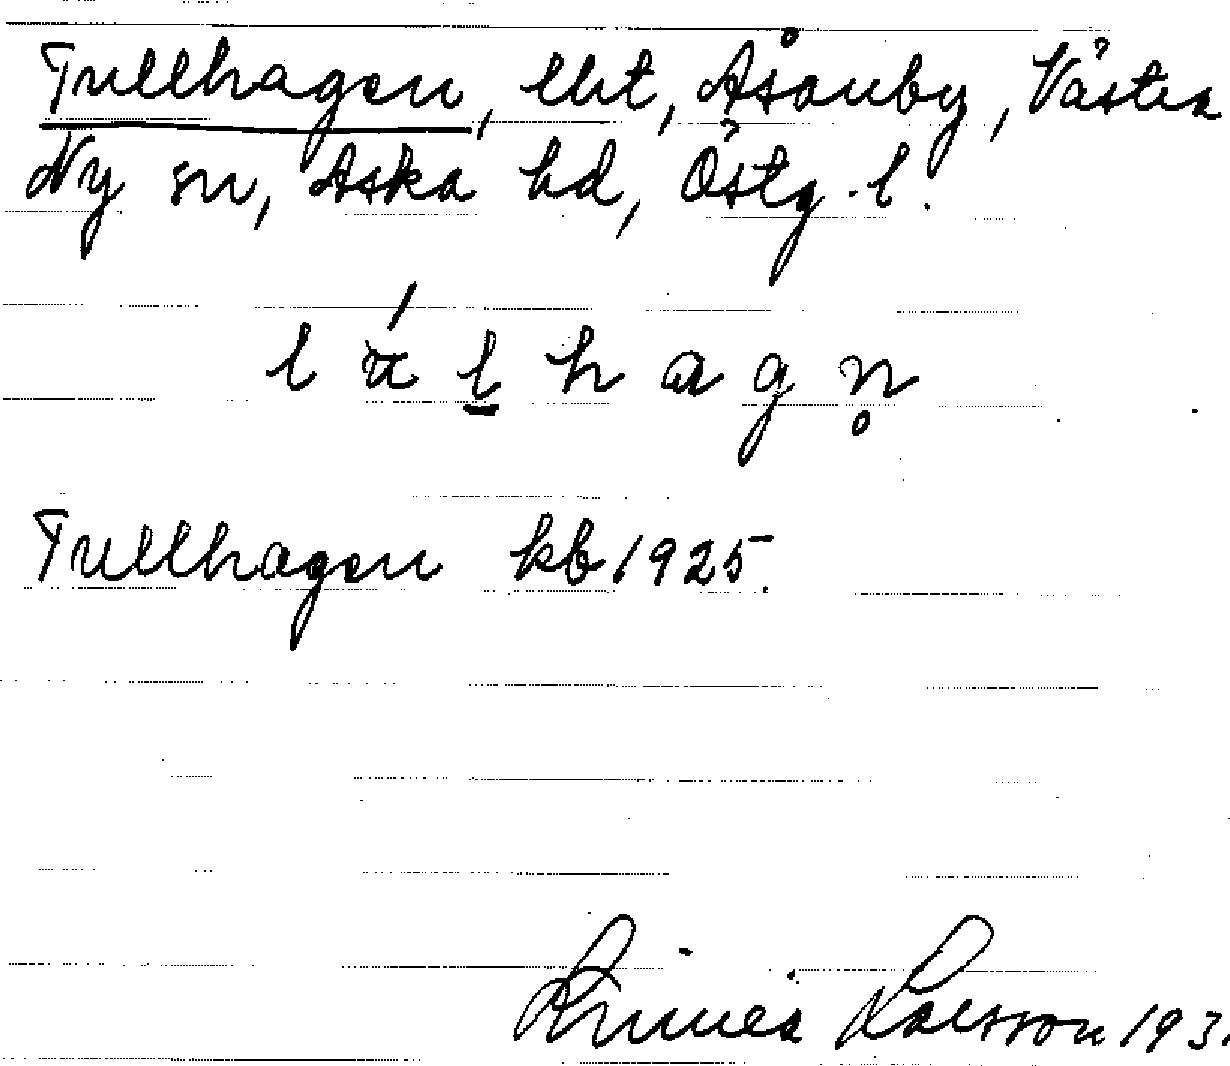 Tullhagen, lht, Åsänby, Västra
Ny sn, Aska hd, Östg. l.
Tullhagen kb 1925.
Linnea Larsson 193